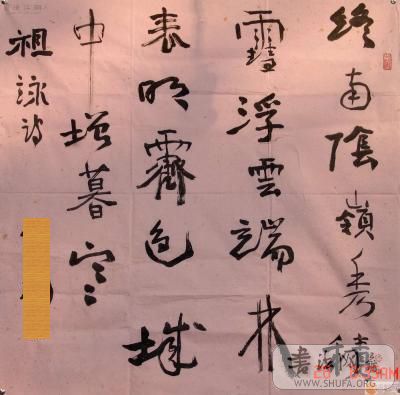 終南陰嶺秀積
雪浮雲端林
表明霽色城
中增暮寒
祖詠詩
WWW.SHUFA.ORG